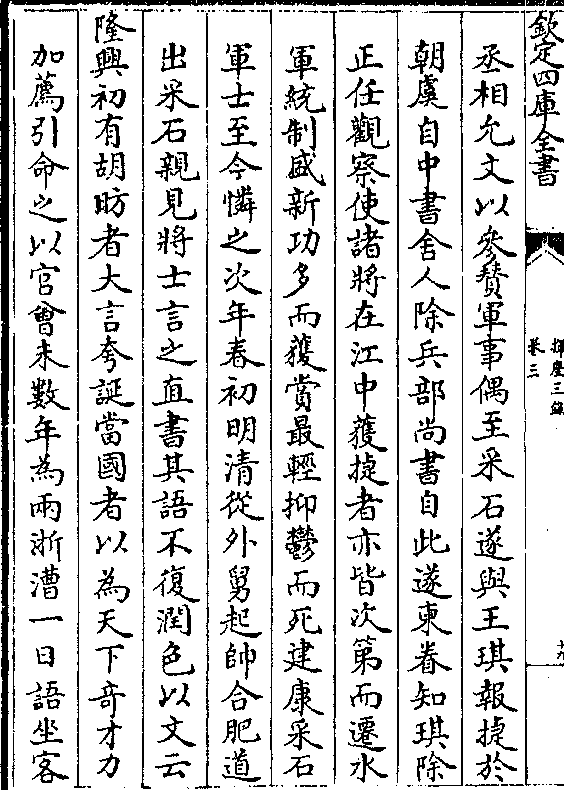 欽定四庫全書
揮麈三錄
卷三
丞相允文以參贊軍事偶至采石遂與王琪報捷於
朝虞自中書舍人除兵部尚書自此遂柬眷知琪除
正任觀察使諸將在江中獲捷者亦皆次第而遷水
軍統制盛新功多而獲賞最輕抑鬱而死建康采石
軍士至今憐之次年春初明清從外舅起帥合肥道
出采石親見將士言之直書其語不復潤色以文云
隆興初有胡昉者大言夸誕當國者以為天下竒才力
加薦引命之以官曾未數年為兩浙漕一日語坐客